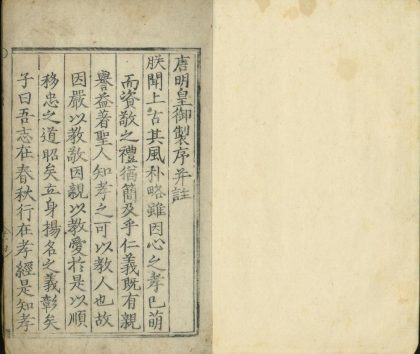 唐明皇御製序并註
朕聞上古其風朴略雖因心之孝已萌
而資敬之禮猶簡及乎仁義既有親
譽益著聖人知孝之可以教人也故
因嚴以教敬因親以教愛於是以順
移忠之道昭矣立身揚名之義彰矣
子曰吾志在春秋行在孝經是知孝